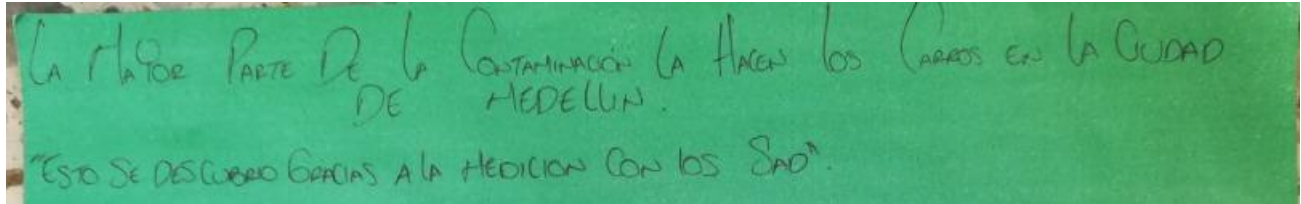 LA MAYOR PARTE DE LA CONTAMINACIÓN LA HACEN LOS CARROS EN LA CIUDAD
DE MEDELLIN.
"ESTO SE DESCUBRIO GRACIAS A LA MEDICION CON LOS SAD".